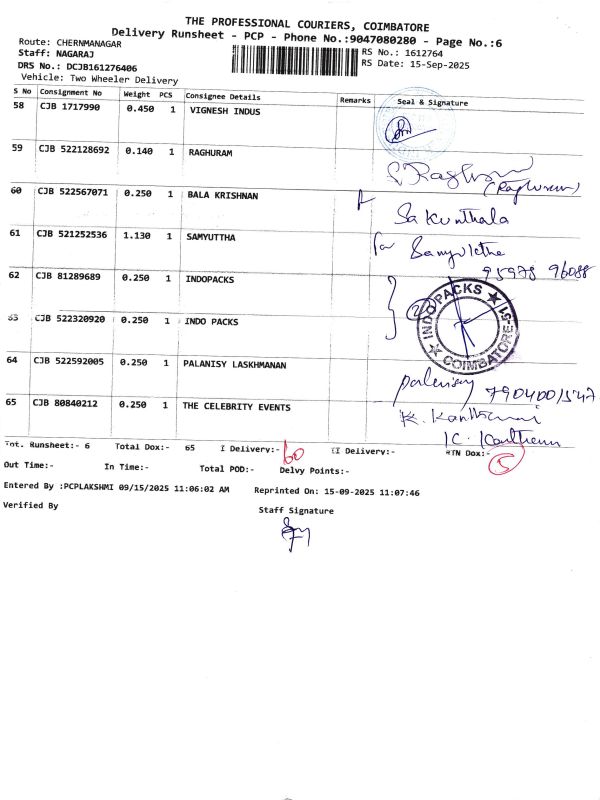 THE PROFESSIONAL COURIERS, COIMBATORE
Delivery Runsheet - PCP - Phone No.:9047080280 - Page No.:6
Route: CHERNMANAGAR
Staff: NAGARAJ
DRS No.: DCJB161276406
Vehicle: Two Wheeler Delivery
RS No.: 1612764
RS Date: 15-Sep-2025
S No Consignment No Weight PCS Consignee Details Remarks Seal & Signature
58 CJB 1717990 0.450 1 VIGNESH INDUS
59 CJB 522128692 0.140 1 RAGHURAM
(Raghuram)
60 CJB 522567071 0.250 1 BALA KRISHNAN
Sakunthala
61 CJB 521252536 1.130 1 SAMYUTTHA
for Samyuktha
95978 96088
62 CJB 81289689 0.250 1 INDOPACKS
INDO PACKS ★ 51 ★ COIMBATORE
63 CJB 522320920 0.250 1 INDO PACKS
64 CJB 522592005 0.250 1 PALANISY LASKHMANAN
palanisay 7904001547
65 CJB 80840212 0.250 1 THE CELEBRITY EVENTS
Tot. Runsheet:- 6 Total Dox:- 65 I Delivery:- 60 II Delivery:- RTN Dox:- 5
Out Time:- In Time:- Total POD:- Delvy Points:-
Entered By :PCPLAKSHMI 09/15/2025 11:06:02 AM Reprinted On: 15-09-2025 11:07:46
Verified By Staff Signature